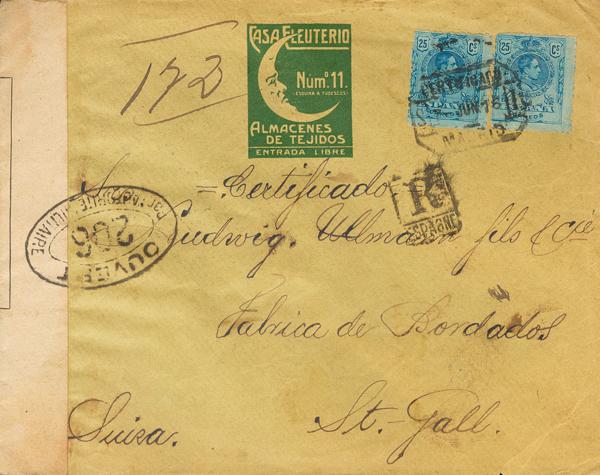 172
CASA ELEUTERIO
Núm.º 11.
(ESQUINA A TUDESCOS)
ALMACENES
DE TEJIDOS
ENTRADA LIBRE
25 Cs 25 Cs
CERTIFICADO
JUN 16
MADRID
R
ESPAGNE
= Certificado
Ludwig. Ullmann fils & Cie
OUVERT
206
PAR L'AUTORITÉ MILITAIRE
Fabrica de Bordados
St-Gall.
Suiza.